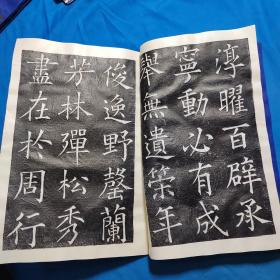 淳曜百辟承
寧動必有成
舉無遺策年
俊逸野罄蘭
芳林殫松秀
盡在於周行